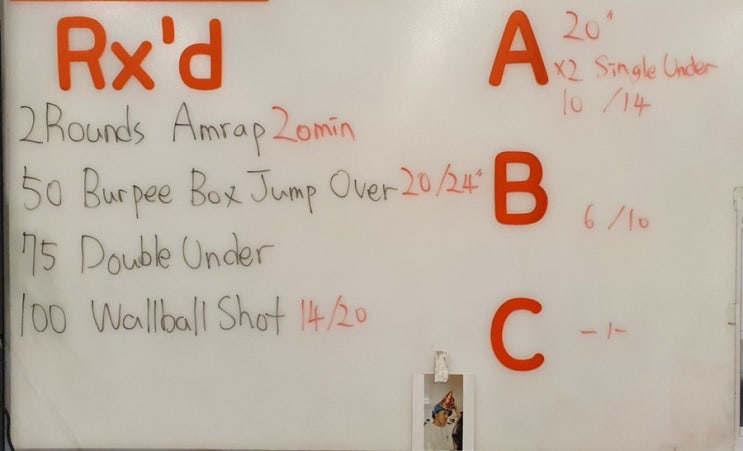 Rx'd
2Rounds Amrap 20min
50 Burpee Box Jump Over 20/24"
75 Double Under
100 Wallball Shot 14/20
A
20"
x2 Single Under
10 /14
B
6 /10
C
- / -